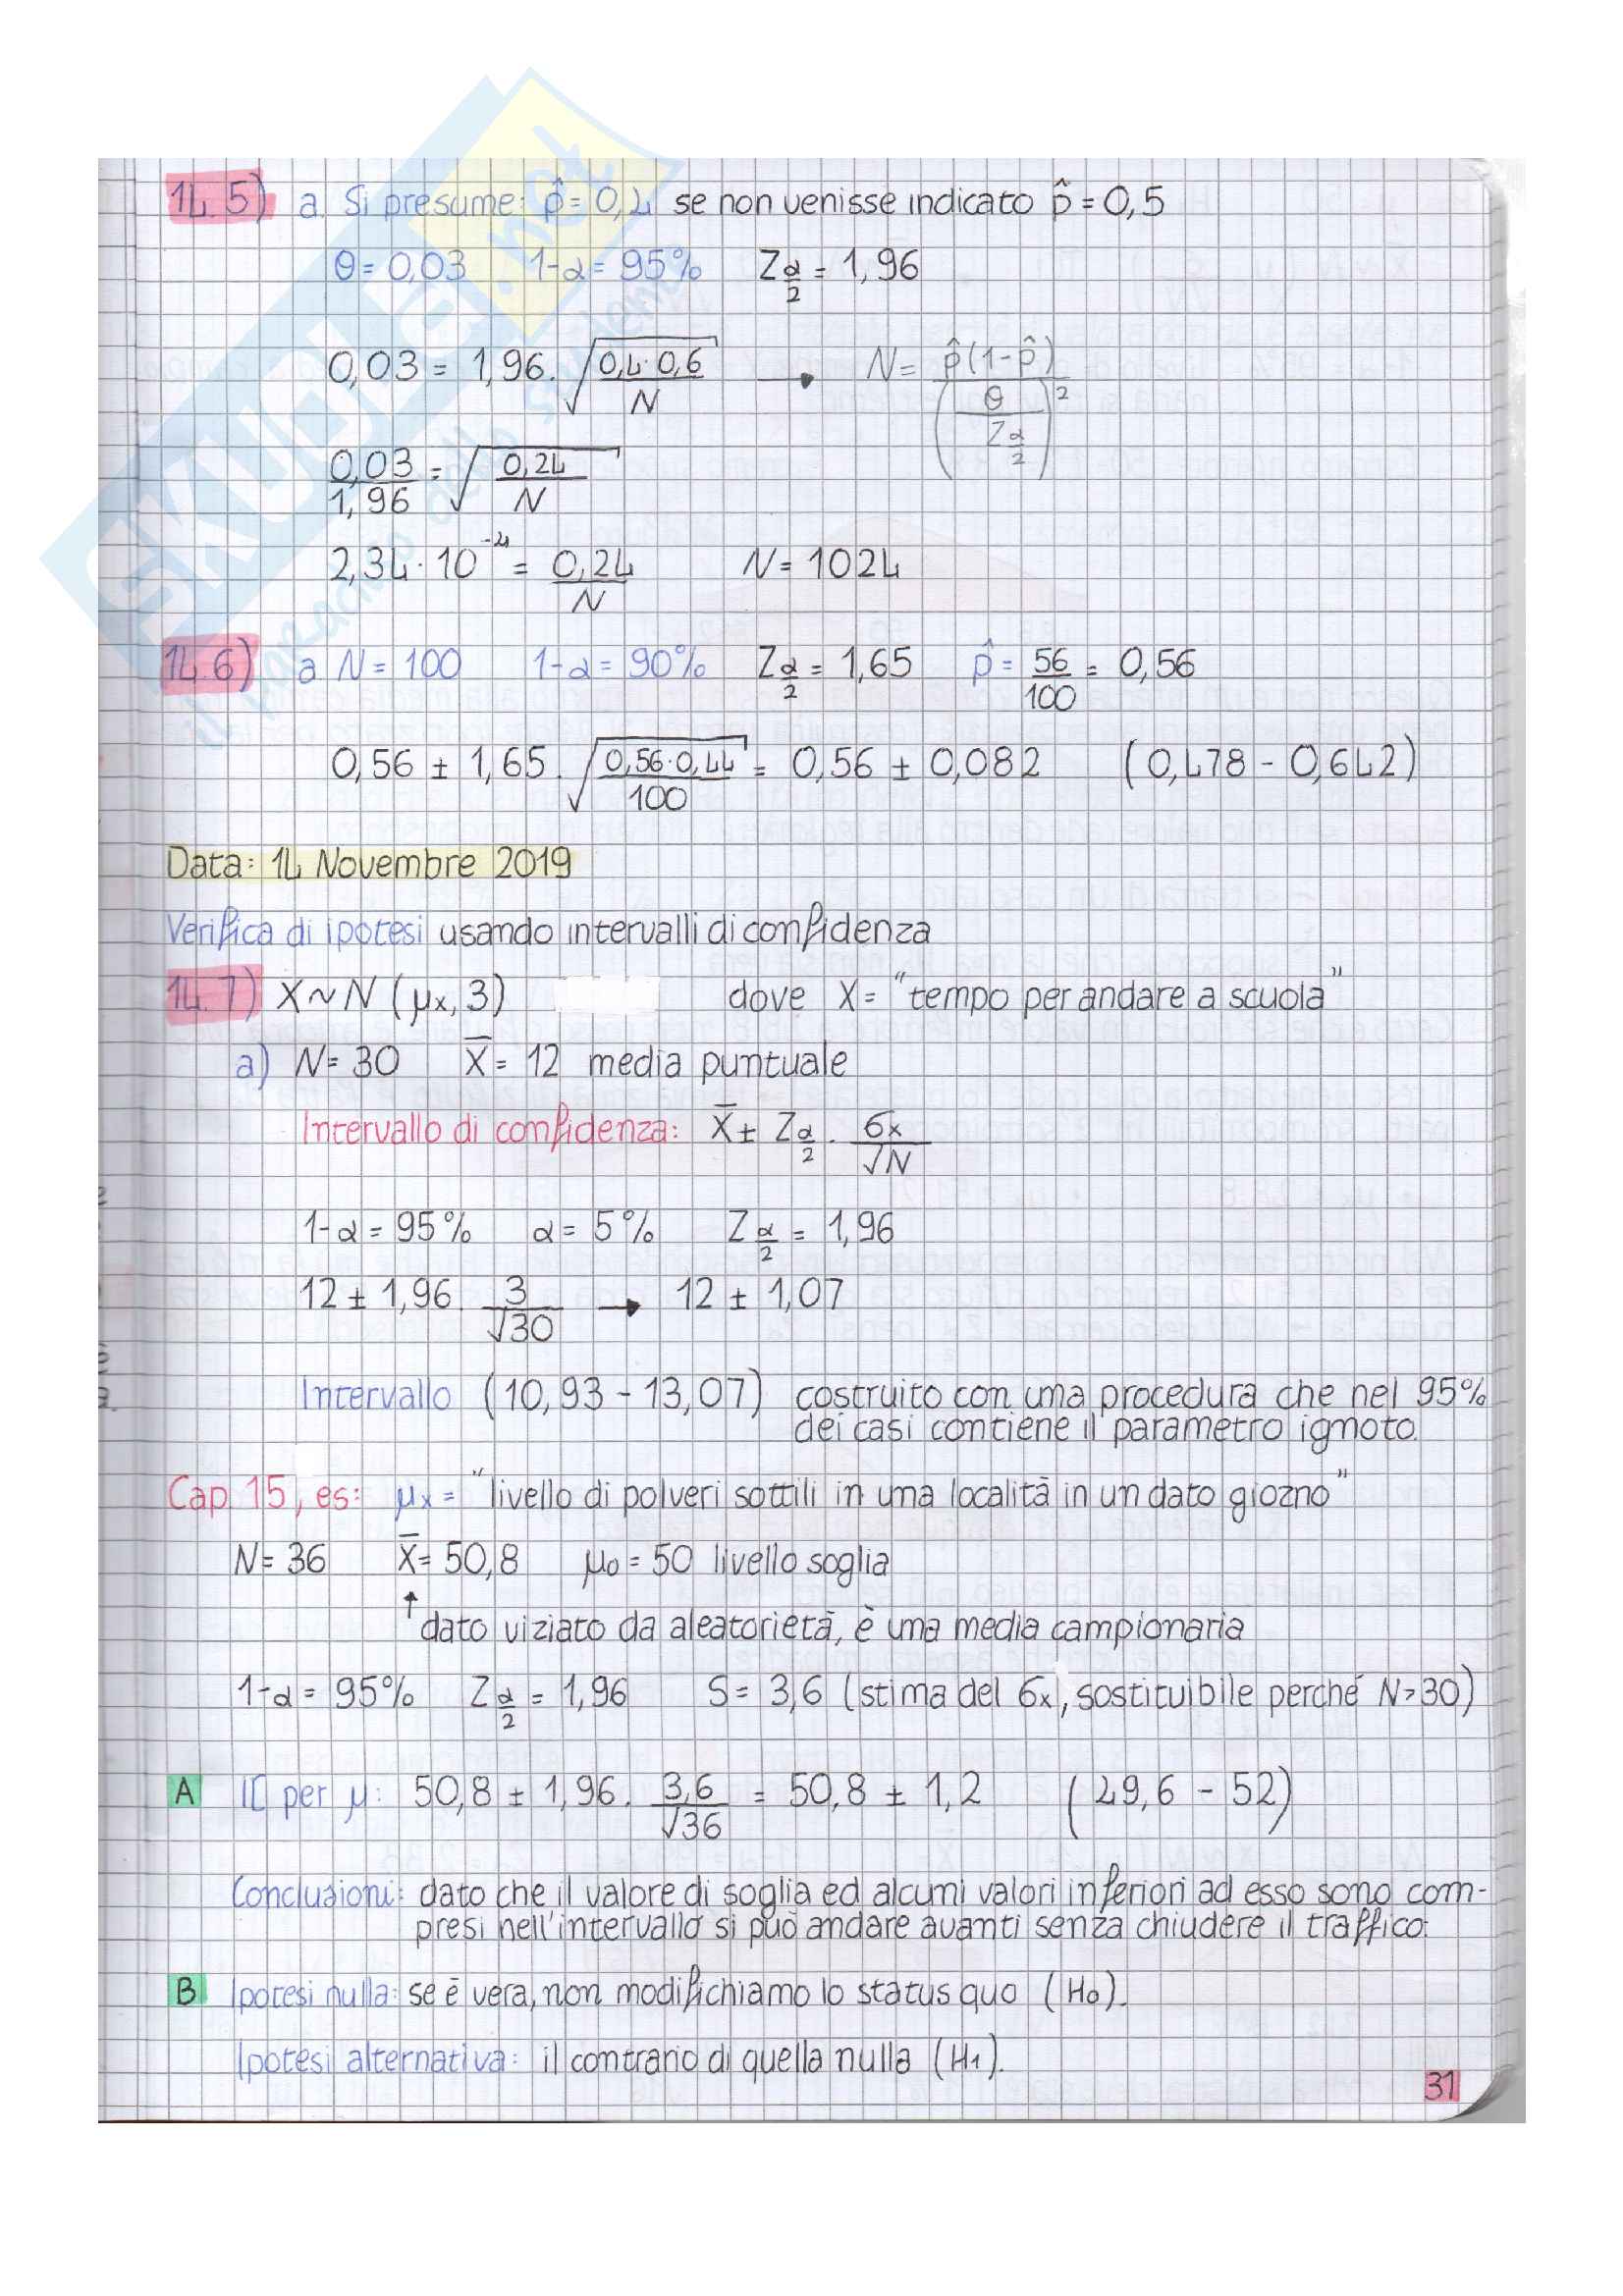 14.5) a. Si presume: p̂ = 0,4 se non venisse indicato p̂ = 0,5
θ = 0,03 1-α = 95% Zα/2 = 1,96
0,03 = 1,96 · √(0,4·0,6/N) → N = p̂(1-p̂)/(θ/Zα/2)²
0,03/1,96 = √(0,24/N)
2,34 · 10⁻⁴ = 0,24/N N = 1024
14.6) a N = 100 1-α = 90% Zα/2 = 1,65 p̂ = 56/100 = 0,56
0,56 ± 1,65 · √(0,56·0,44/100) = 0,56 ± 0,082 (0,478 - 0,642)
Data: 14 Novembre 2019
Verifica di ipotesi usando intervalli di confidenza
14.7) X ~ N (μx, 3) dove X = "tempo per andare a scuola"
a) N = 30 X̄ = 12 media puntuale
Intervallo di confidenza: X̄ ± Zα/2 · σx/√N
1-α = 95% α = 5% Zα/2 = 1,96
12 ± 1,96 · 3/√30 → 12 ± 1,07
Intervallo (10,93 - 13,07) costruito con una procedura che nel 95%
dei casi contiene il parametro ignoto.
Cap 15, es: μx = "livello di polveri sottili in una località in un dato giorno"
N = 36 X̄ = 50,8 μ0 = 50 livello soglia
↑ dato viziato da aleatorietà, è una media campionaria
1-α = 95% Zα/2 = 1,96 S = 3,6 (stima del σx, sostituibile perché N > 30)
A IC per μ: 50,8 ± 1,96 · 3,6/√36 = 50,8 ± 1,2 (49,6 - 52)
Conclusioni: dato che il valore di soglia ed alcuni valori inferiori ad esso sono com-
presi nell'intervallo si può andare avanti senza chiudere il traffico.
B Ipotesi nulla: se è vera, non modifichiamo lo status quo (H0).
Ipotesi alternativa: il contrario di quella nulla (H1).
31
SKUOLA.net
il paradiso dello studente